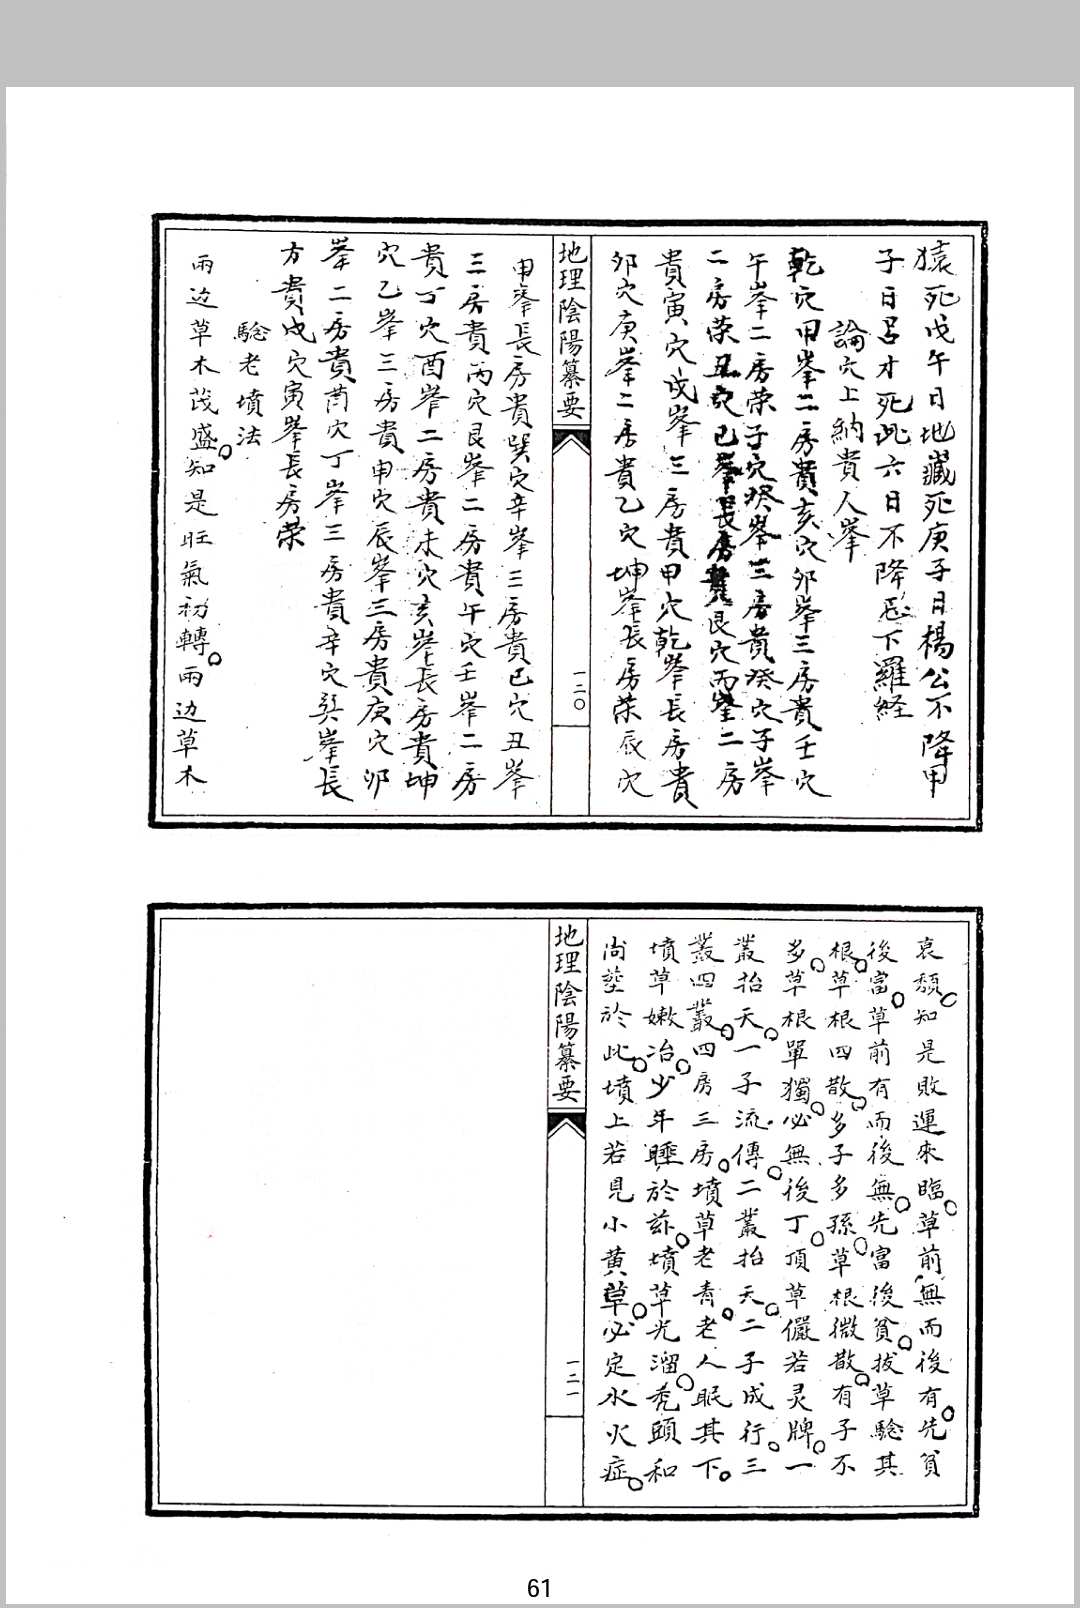 猿死戊午日地藏死庚子日楊公不降甲
子日呂才死此六日不降忌下羅経
論穴上納貴人峯
乾穴甲峯二房貴亥穴卯峯三房貴壬穴
午峯二房荣子穴癸峯三房貴癸穴子峯
二房荣丑穴巳峯長房貴艮穴丙峯二房
貴寅穴戌峯三房貴甲穴乾峯長房貴
卯穴庚峯二房貴乙穴坤峯長房荣辰穴
地理陰陽纂要
一二〇
申峯長房貴巽穴辛峯三房貴巳穴丑峯
三房貴丙穴艮峯二房貴午穴壬峯二房
貴丁穴酉峯二房貴未穴亥峯長房貴坤
穴乙峯三房貴申穴辰峯三房貴庚穴卯
峯二房貴酉穴丁峯三房貴辛穴巽峯長
方貴戌穴寅峯長房荣
騐老墳法
兩边草木茂盛。知是旺氣初轉。兩边草木
衰頽。知是敗運來臨。草前無而後有。先貧
後富。草前有而後無。先富後貧。拔草騐其
根。草根四散。多子多孫。草根微散。有子不
多。草根單獨。必無後丁。頂草儼若灵牌。一
叢抬天。一子流傳。二叢抬天。二子成行。三
叢四叢。四房三房。墳草老青。老人眠其下。
墳草嫩冶。少年睡於兹。墳草光溜。秃頭和
尚塟於此。墳上若見小黄草。必定水火症。
地理陰陽纂要
一二一
61